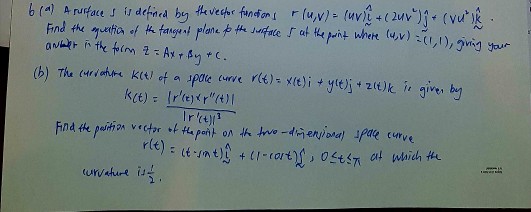 6 (a) A surface S is defined by the vector functions r(u,v) = (uv)î + (2uv²)ĵ + (vu²)k̂ .
Find the equation of the tangent plane to the surface S at the point where (u,v) = (1,1), giving your
answer in the form z = Ax + By + C.
(b) The curvature K(t) of a space curve r(t) = x(t)i + y(t)j + z(t)k is given by
K(t) = |r'(t) × r''(t)| / |r'(t)|³
Find the position vector of the point on the two-dimensional space curve
r(t) = (t - sin t)î + (1 - cos t)ĵ , 0 ≤ t ≤ π at which the
curvature is 1/2.